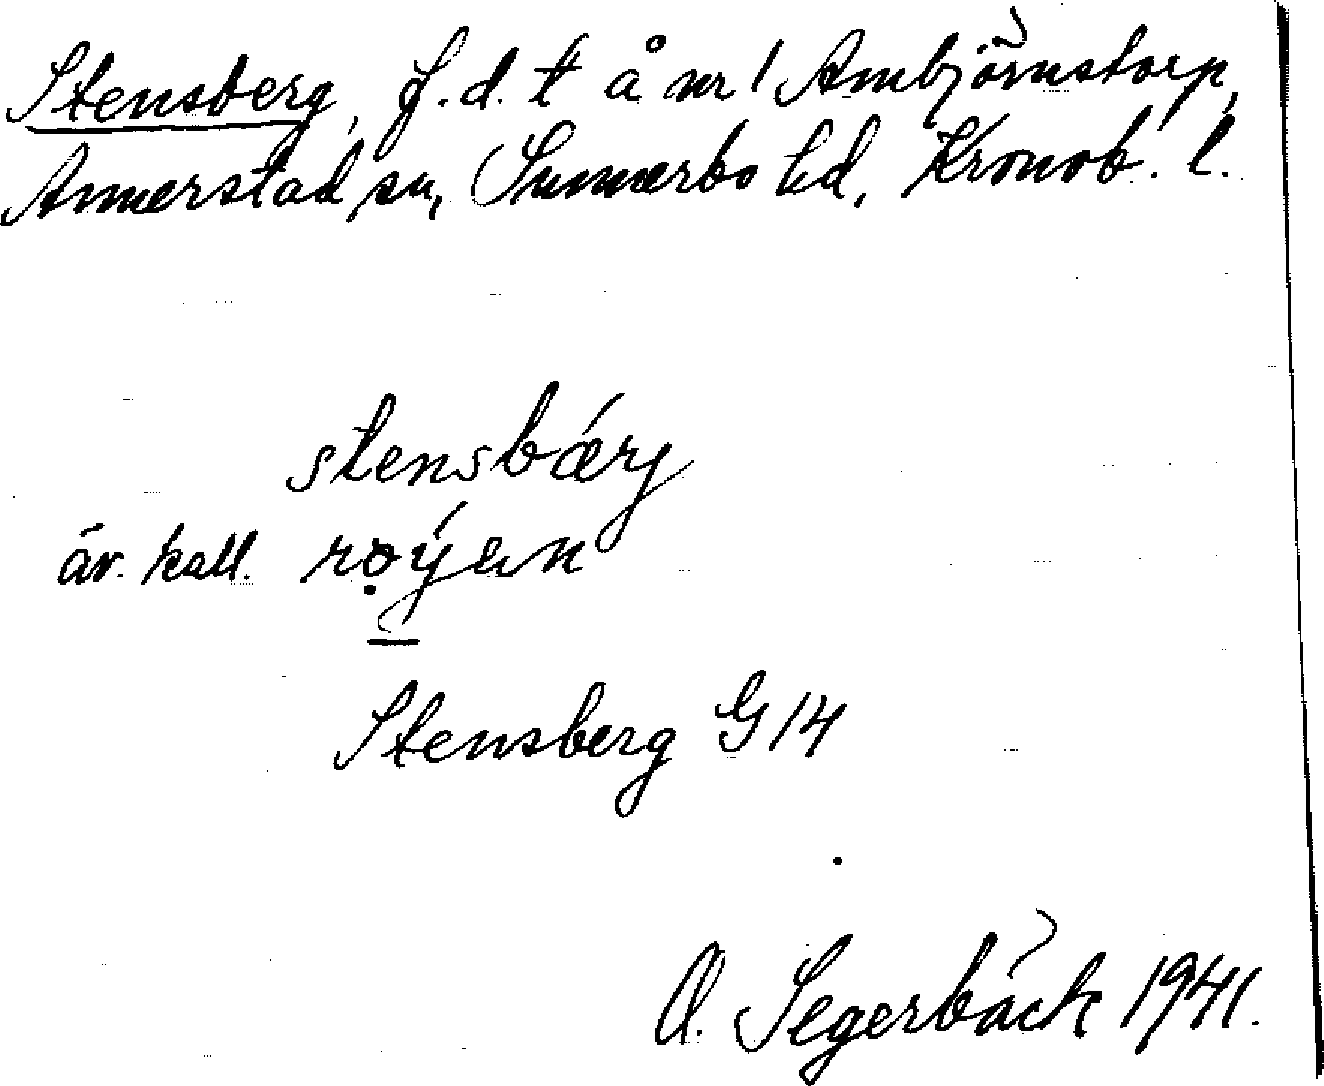 Stensberg, f.d. t å nr 1 Ambjörnstorp,
Annerstad sn, Sunnerbo hd, Kronob. l.
stensbǽrj
äv. kall.
Stensberg G 14
O. Segerbäck 1941.